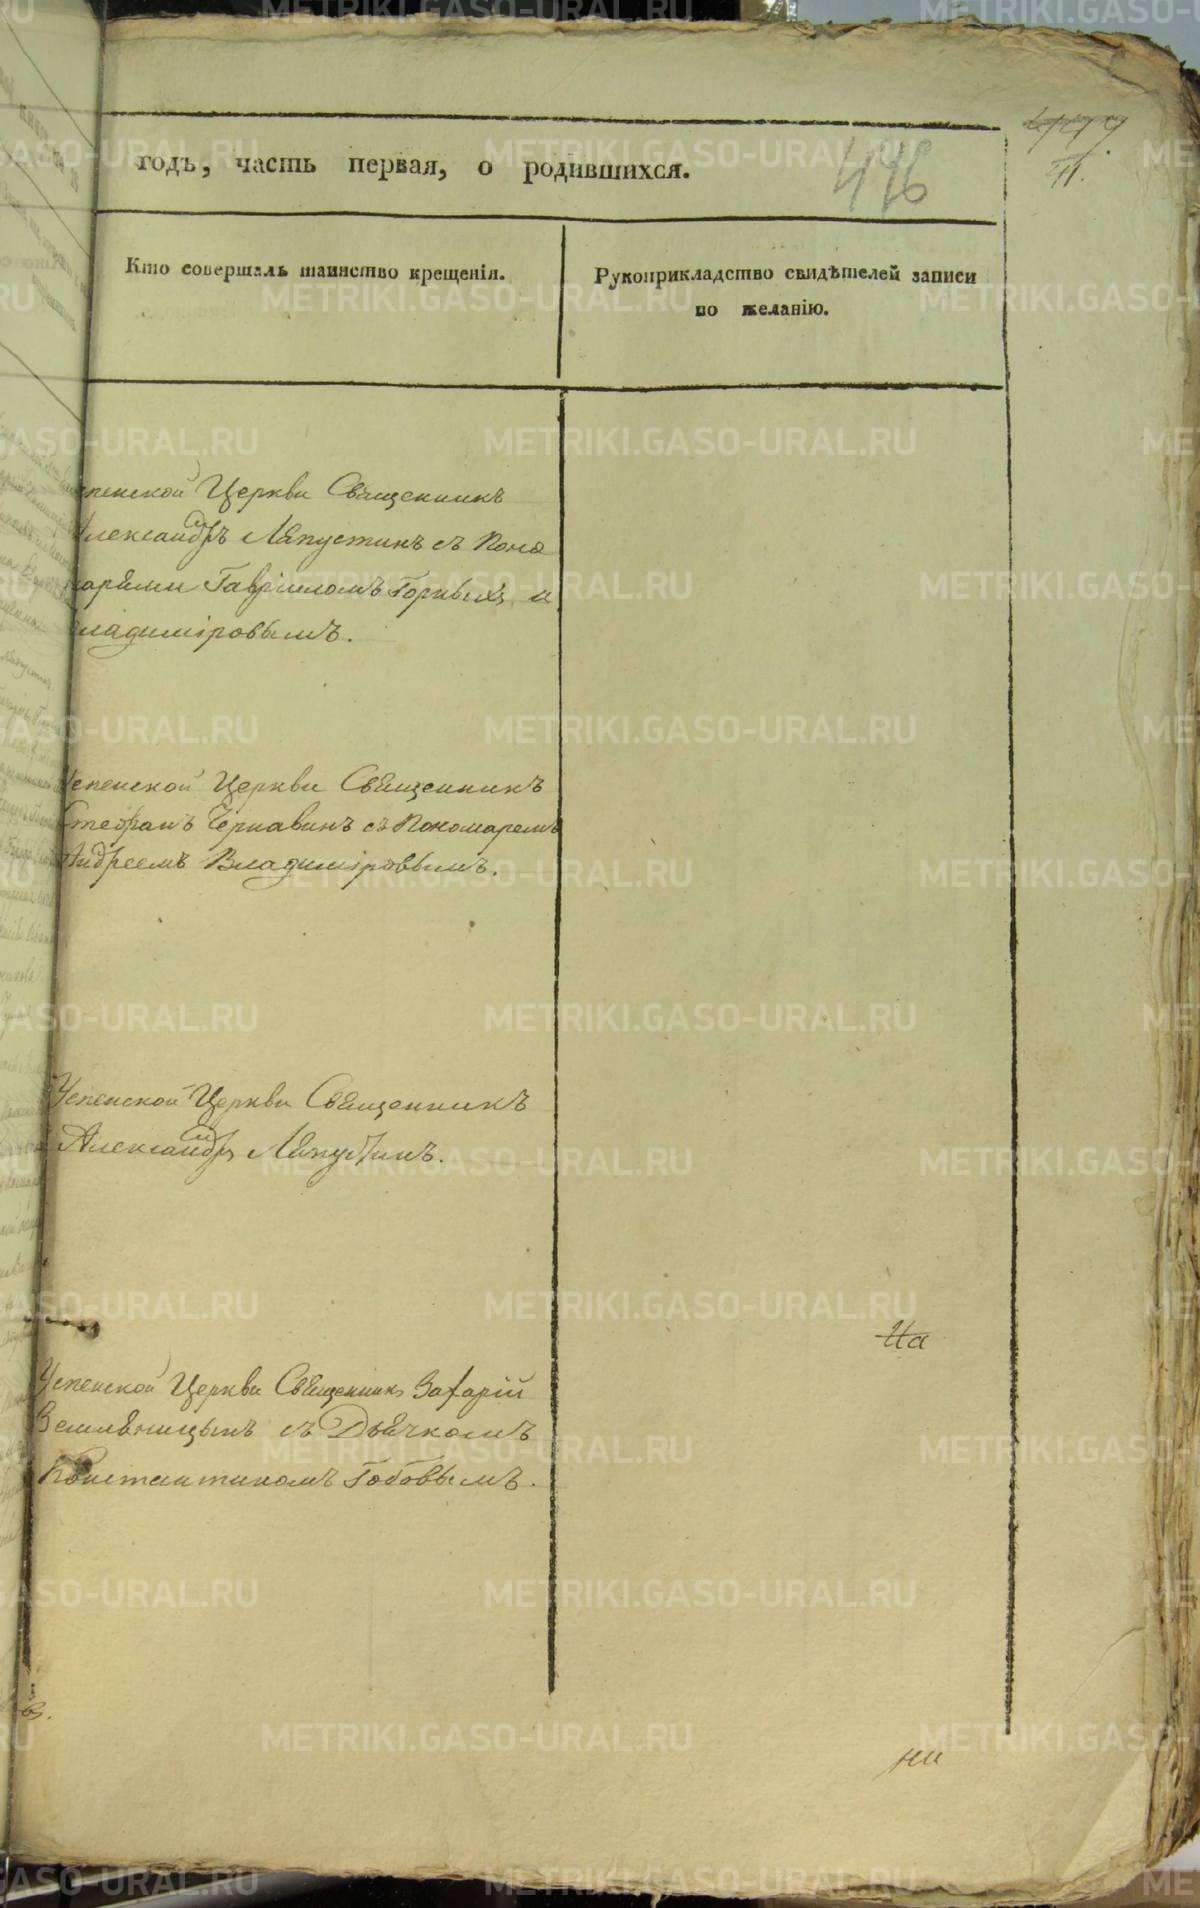 годъ, часть первая, о родившихся.
446
11.
Кто совершалъ таинство крещенія.
Рукоприкладство свидѣтелей записи
по желанію.
спенской Церкви Священникъ
Александръ Ляпустинъ съ Поно
марями Гавріиломъ Горныхъ и
Владиміровымъ.
Успенской Церкви Священникъ
Стефанъ Чернавинъ съ Пономаремъ
Андреемъ Владиміровымъ.
Успенской Церкви Священникъ
Александръ Ляпустинъ.
На
Успенской Церкви Священникъ Захарій
Земляницынъ съ Дьячкомъ
Константиномъ Гобовымъ.
ни
METRIKI.GASO-URAL.RU